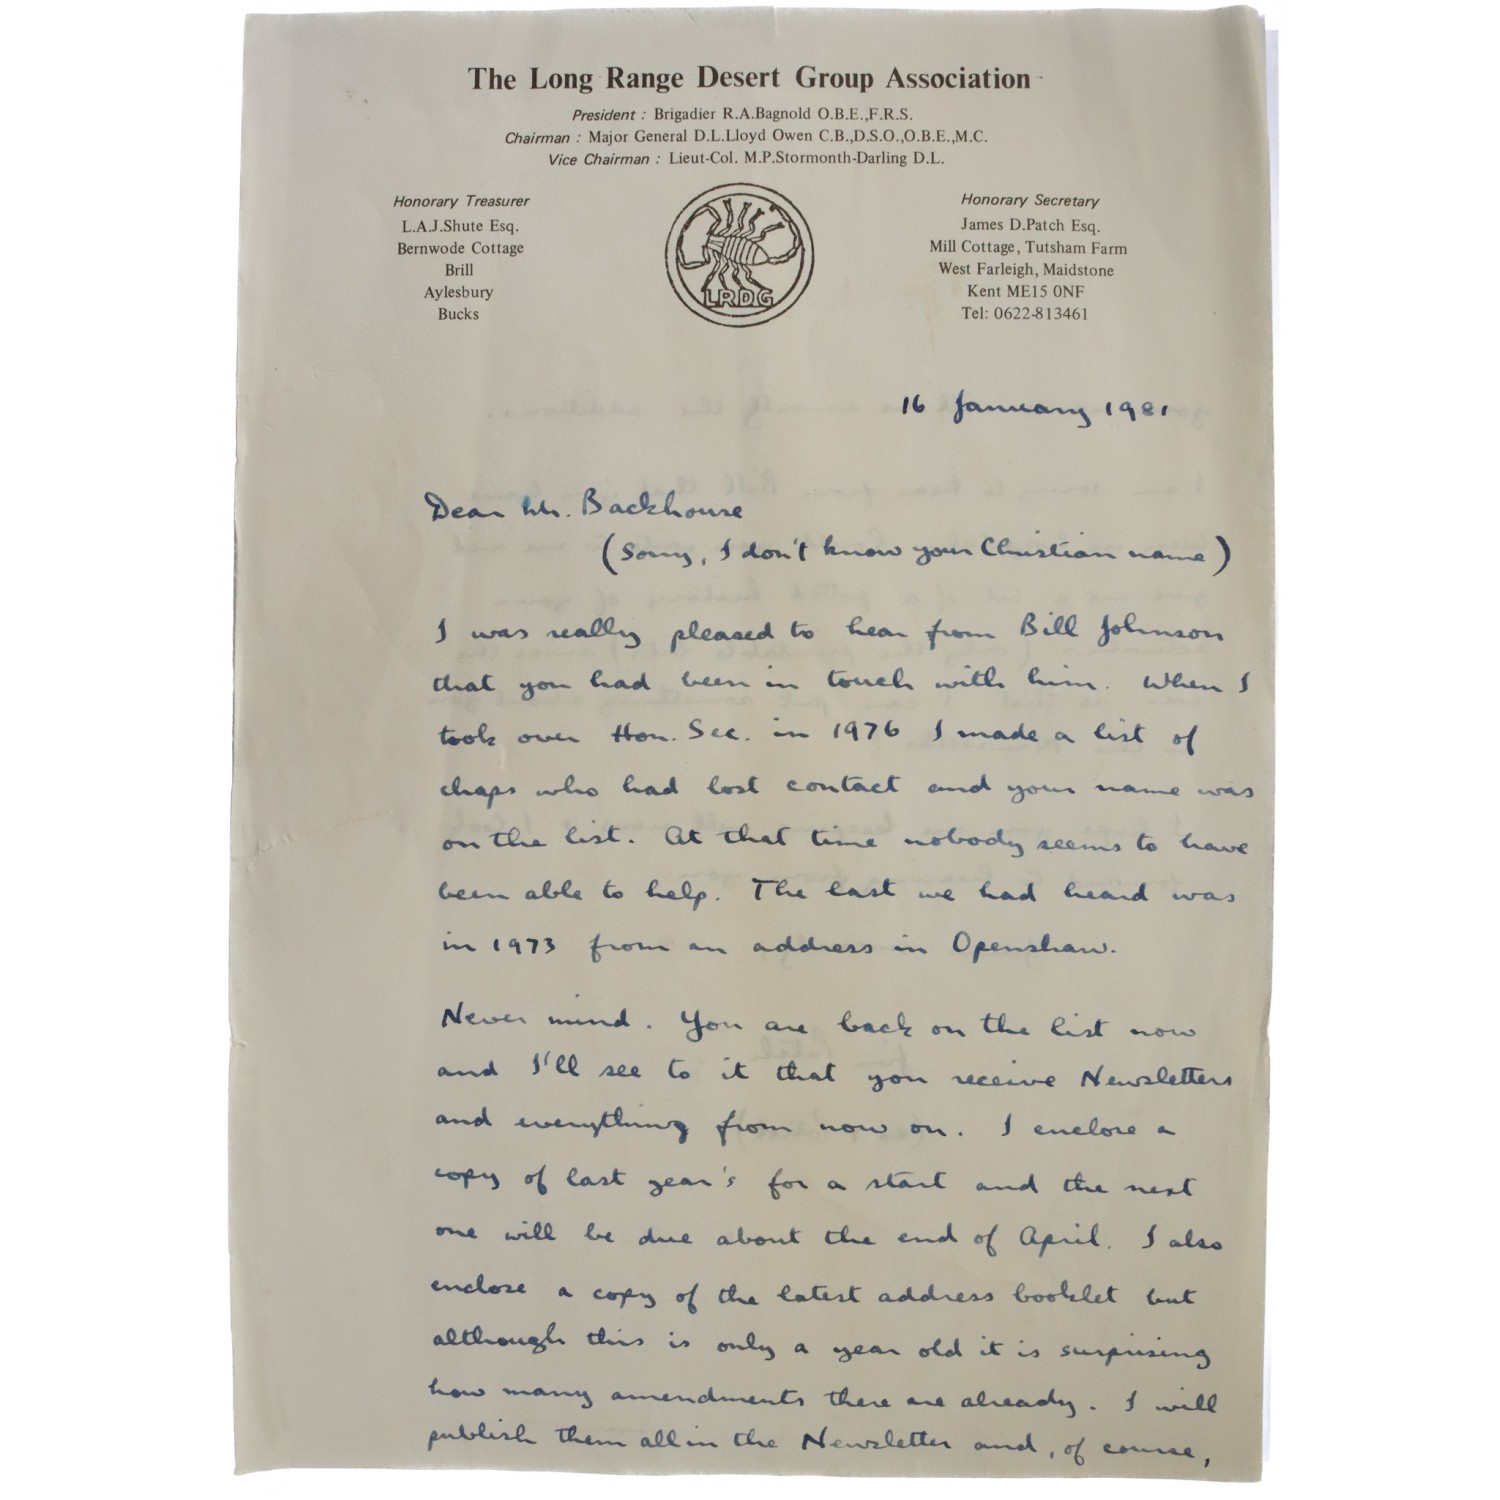 The Long Range Desert Group Association
President : Brigadier R.A.Bagnold O.B.E.,F.R.S.
Chairman : Major General D.L.Lloyd Owen C.B.,D.S.O.,O.B.E.,M.C.
Vice Chairman : Lieut-Col. M.P.Stormonth-Darling D.L.
Honorary Treasurer
L.A.J.Shute Esq.
Bernwode Cottage
Brill
Aylesbury
Bucks
LRDG
Honorary Secretary
James D.Patch Esq.
Mill Cottage, Tutsham Farm
West Farleigh, Maidstone
Kent ME15 0NF
Tel: 0622-813461
16 January 1981
Dear Mr. Backhouse
(Sorry, I don't know your Christian name)
I was really pleased to hear from Bill Johnson
that you had been in touch with him. When I
took over Hon. Sec. in 1976 I made a list of
chaps who had lost contact and your name was
on the list. At that time nobody seems to have
been able to help. The last we had heard was
in 1973 from an address in Openshaw.
Never mind. You are back on the list now
and I'll see to it that you receive Newsletters
and everything from now on. I enclose a
copy of last year's for a start and the next
one will be due about the end of April. I also
enclose a copy of the latest address booklet but
although this is only a year old it is surprising
how many amendments there are already. I will
publish them all in the Newsletter and, of course,